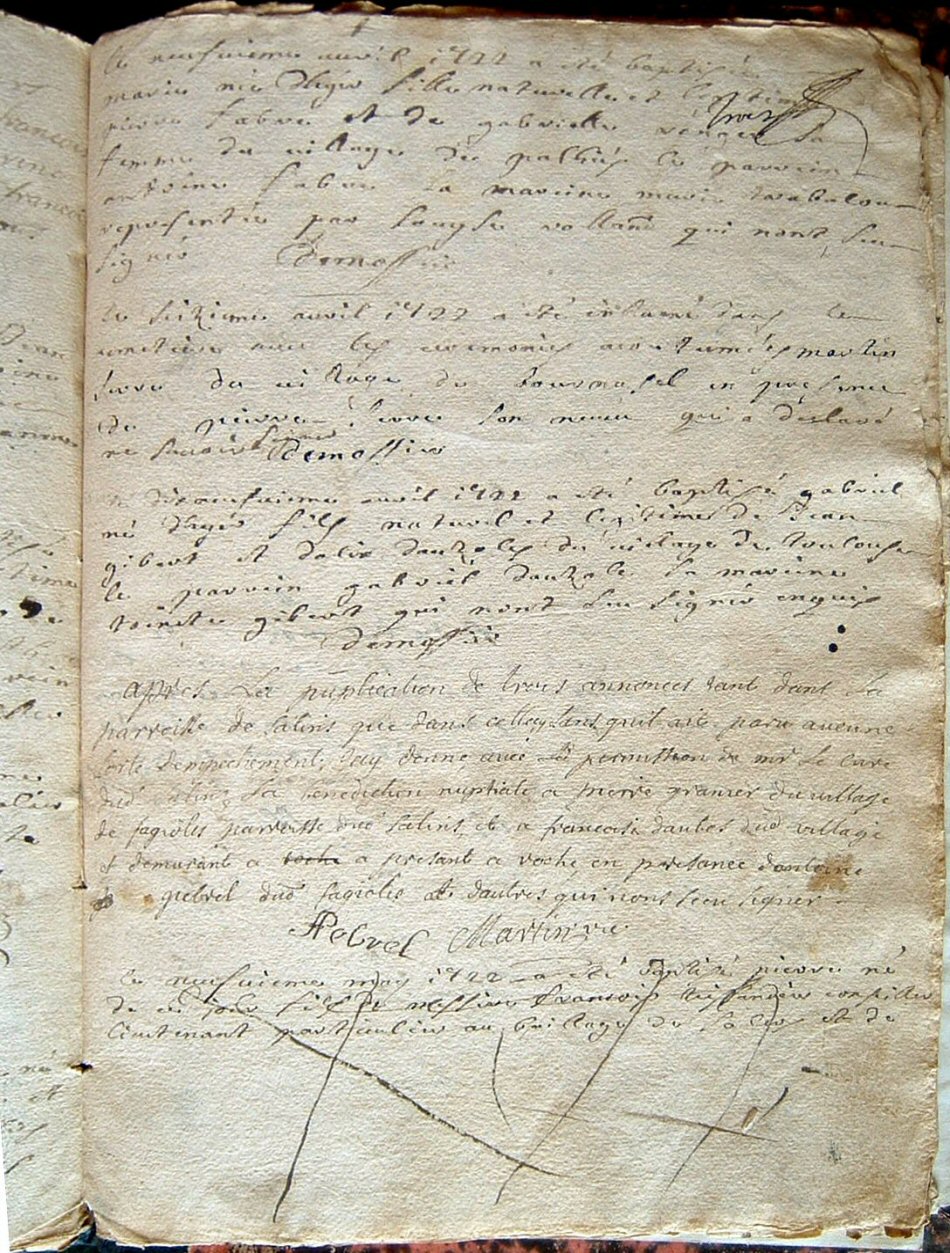 Le neufvieme avril 1722 a été baptisée
marie née d'hyer fille naturelle et legitime
pierre fabre et de gabrielle sa
femme du village de le parrein
antoine fabre la mareine marie
representée par rolland qui n'ont sceu
signer Demossier
trois
le seizieme avril 1722 a été inhumé dans le
cimetiere avec les ceremonies accoutumées martin
serre du village de bournasel en presence
de pierre serre son neveu qui a déclaré
ne scavoir signer Demossier
le dixneufvieme avril 1722 a été baptisé gabriel
né d'hyer fils naturel et legitime de Jean
gibert et d'alix dauzoles du village de toulouse
le parrein gabriel dauzole la mareine
toinete gibert qui n'ont sceu signer enquis
Demossier
apres La publication de trois annonces tant dans la
parroisse de salins que dans cellecy sans quil aie paru aucune
sorte dempechement, Jay donne avec la permission de mr le cure
dud salins La benediction nuptiale a pierre granier du village
de fagioles parroisse dud salins et a francoise daubes dud village
et demurant a roche a presant a roche en presance dantoine
pebrel dud fagioles et dautres qui nont sceu signer
Pebrel Martin vic
Le neufvieme may 1722 a été baptisé pierre né
de ce jour fils de messire francois conseiller
lieutenant particulier au bailliage de salers et de